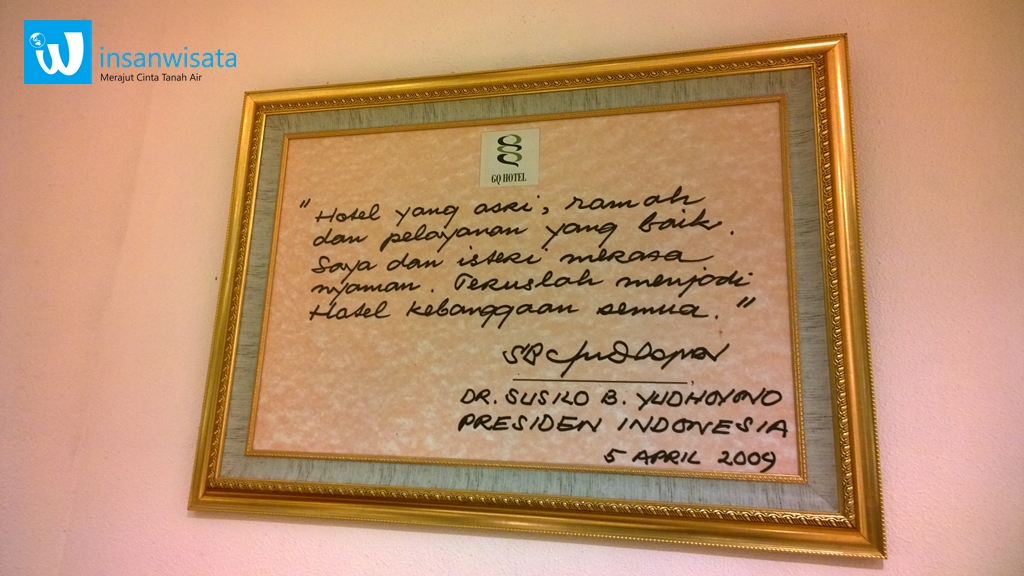 insanwisata
Merajut Cinta Tanah Air
GQ HOTEL
"Hotel yang asri, ramah
dan pelayanan yang baik.
Saya dan isteri merasa
nyaman. Teruslah menjadi
Hotel kebanggaan semua."
SBYudhoyono
DR. SUSILO B. YUDHOYONO
PRESIDEN INDONESIA
5 APRIL 2009